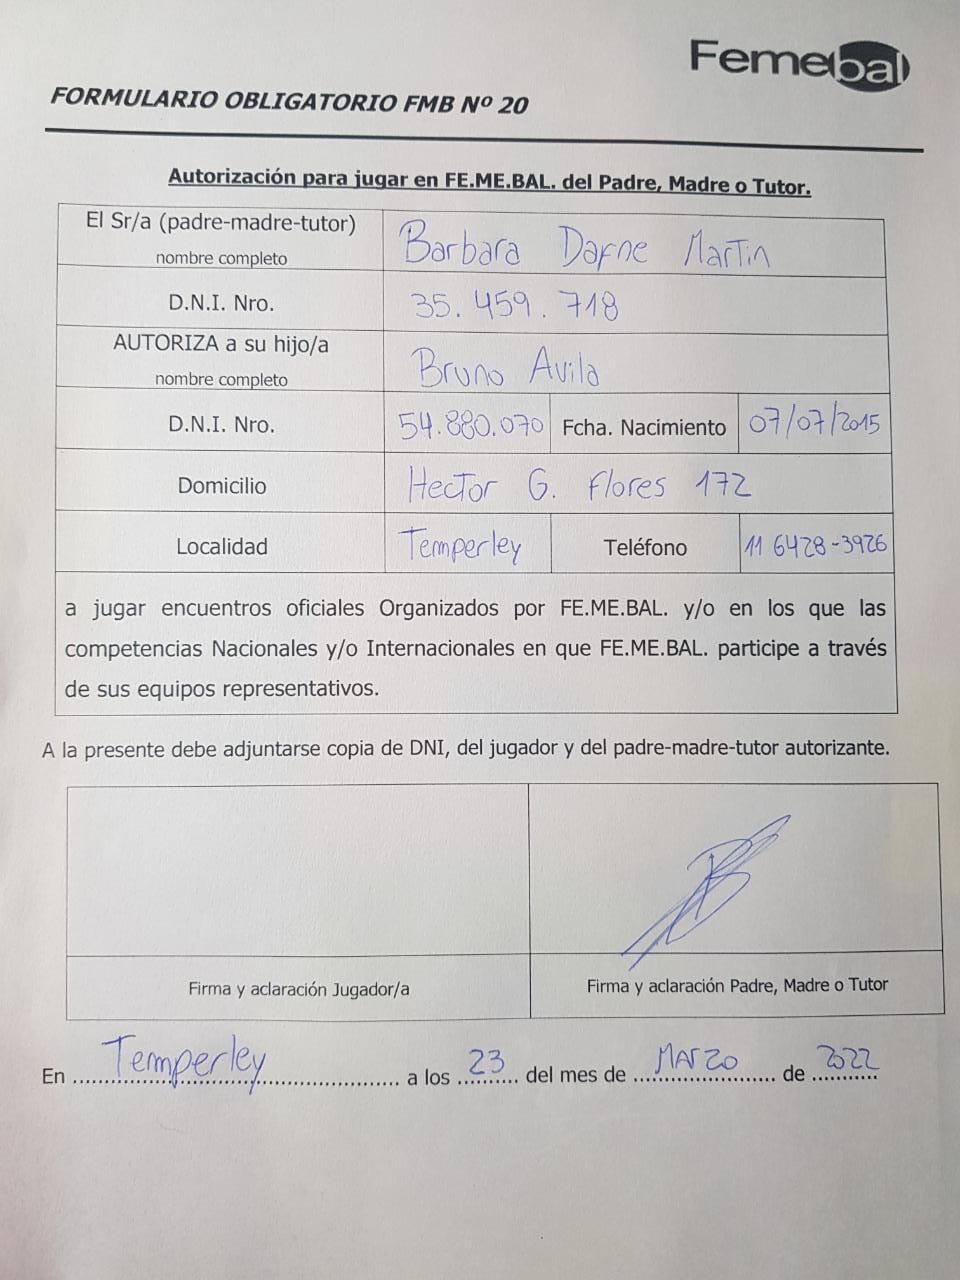 Femebal
FORMULARIO OBLIGATORIO FMB Nº 20
Autorización para jugar en FE.ME.BAL. del Padre, Madre o Tutor.
El Sr/a (padre-madre-tutor)
nombre completo
Barbara Dafne Martin
D.N.I. Nro.
35.459.718
AUTORIZA a su hijo/a
nombre completo
Bruno Avila
D.N.I. Nro.
54.880.070
Fcha. Nacimiento
07/07/2015
Domicilio
Hector G. Flores 172
Localidad
Temperley
Teléfono
11 6428-3926
a jugar encuentros oficiales Organizados por FE.ME.BAL. y/o en los que las
competencias Nacionales y/o Internacionales en que FE.ME.BAL. participe a través
de sus equipos representativos.
A la presente debe adjuntarse copia de DNI, del jugador y del padre-madre-tutor autorizante.
Firma y aclaración Jugador/a
Firma y aclaración Padre, Madre o Tutor
En Temperley a los 23 del mes de Marzo de 2022